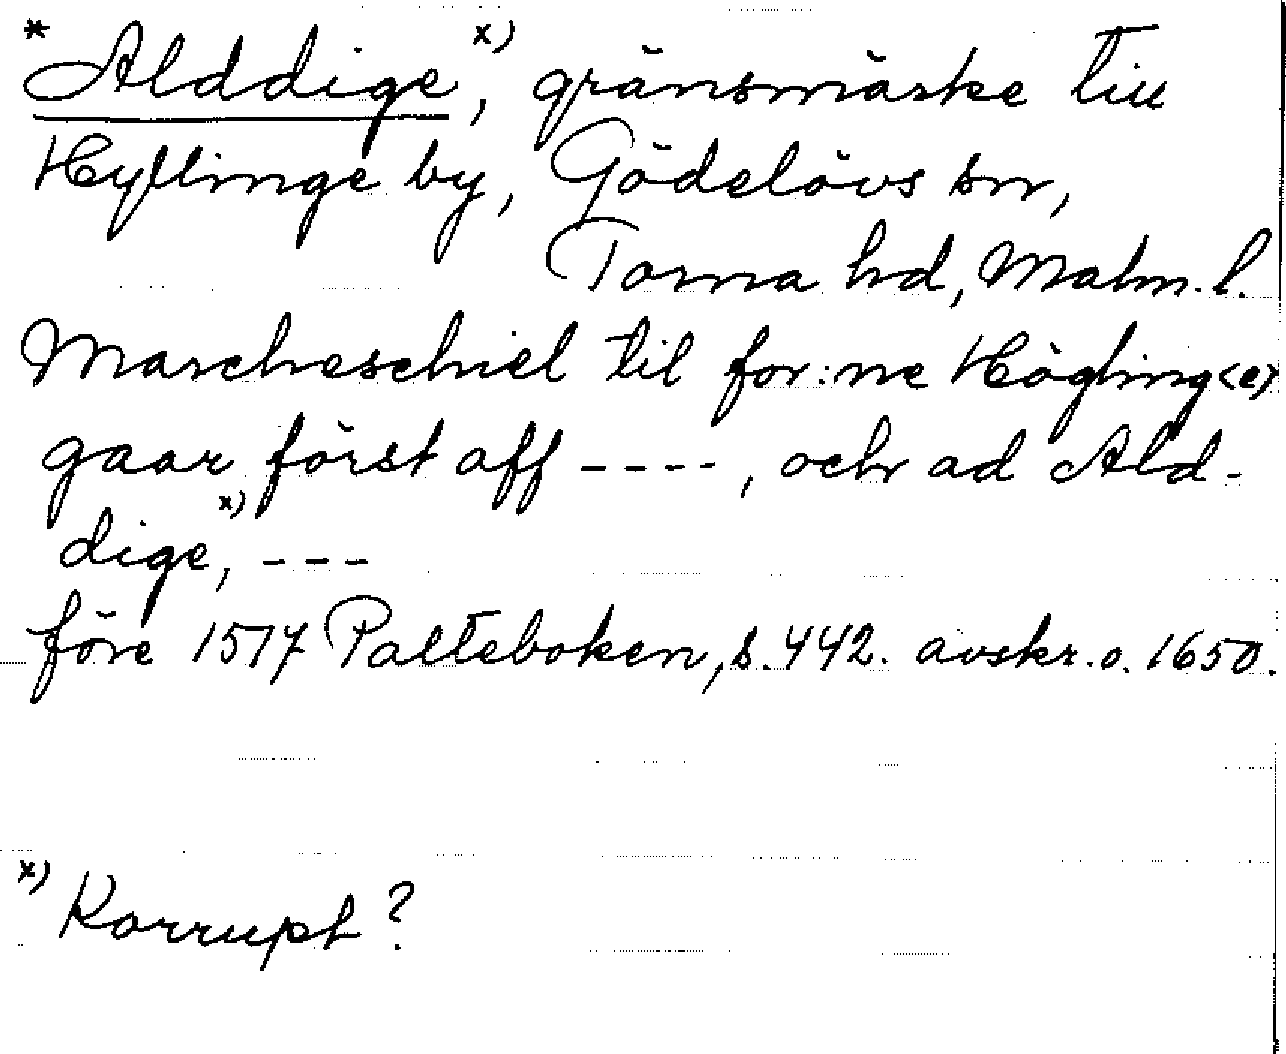 * Alddige, x) gränsmärke till
Hyllinge by, Gödelövs sn,
Torna hd, Malm. l.
Marcheschiel til for:ne Högling<e>
gaar först aff ----, och ad Ald-
dige, x) ---
före 1517 Palteboken, s. 442. avskr. o. 1650.
x) Korrupt?